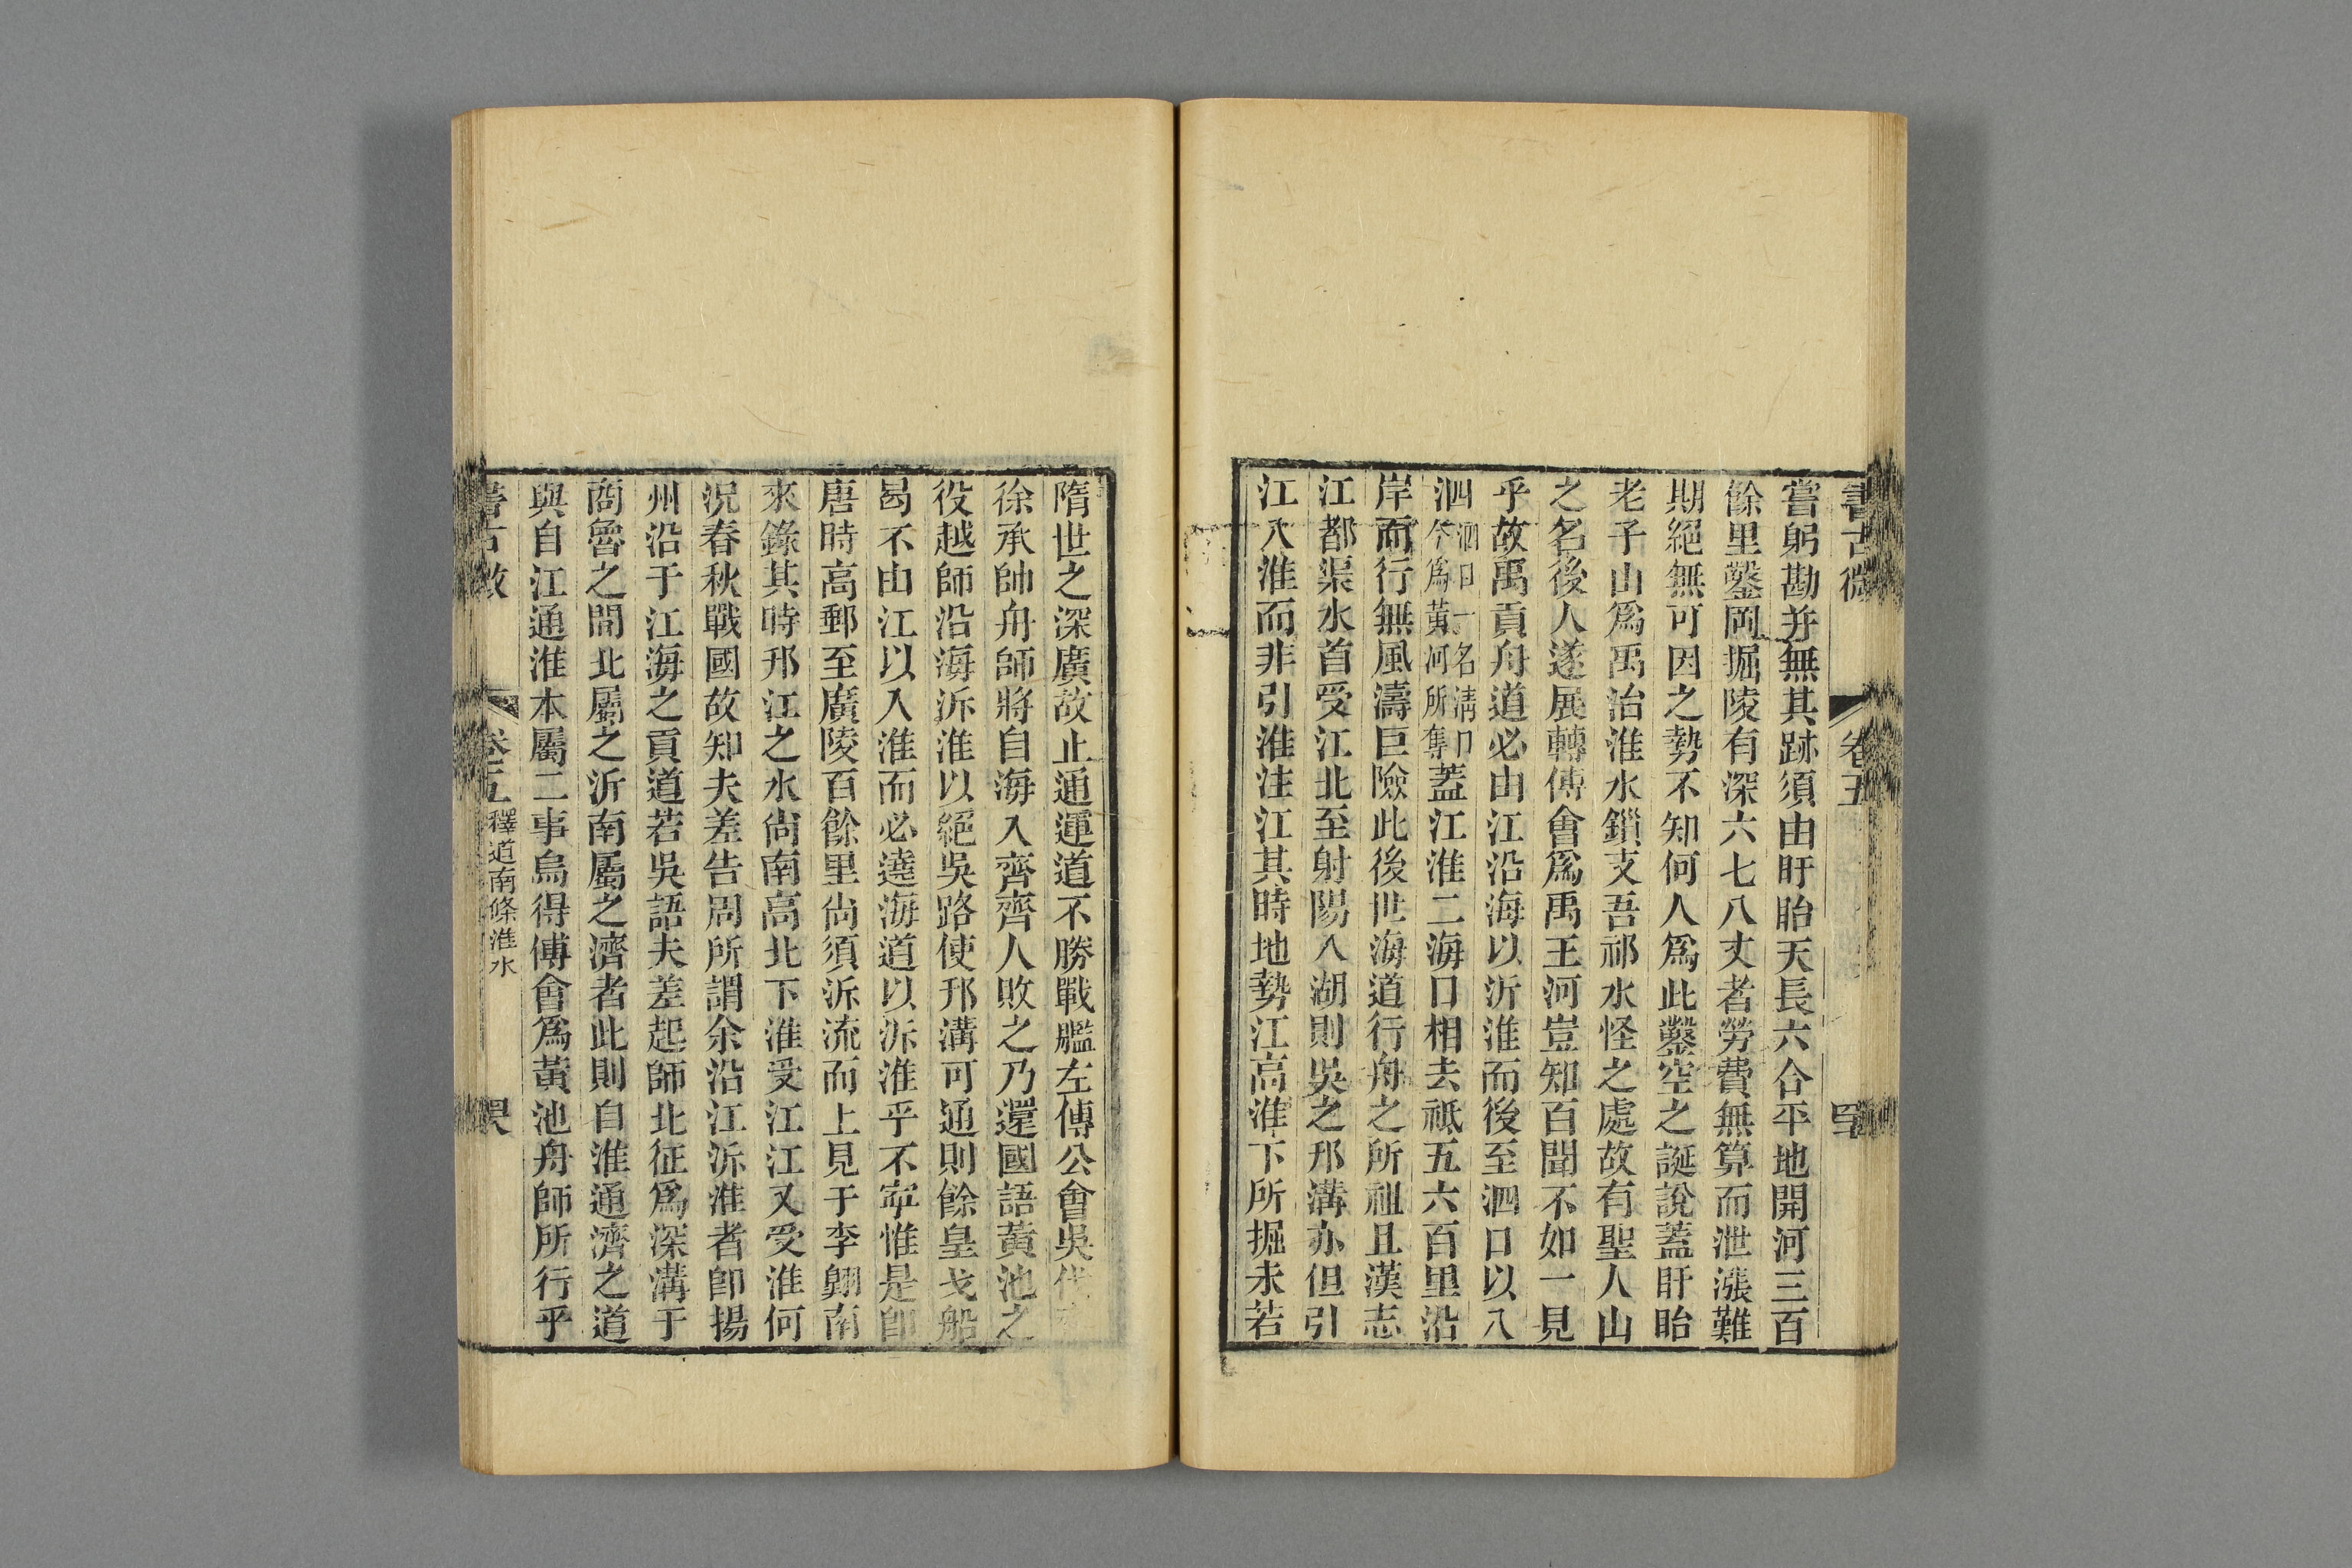 書古微
卷五
嘗躬勘并無其跡須由盱眙天長六合平地開河三百
餘里鑿岡掘陵有深六七八丈者勞費無算而泄漲難
期絕無可因之勢不知何人爲此鑿空之誕說蓋盱眙
老子山爲禹治淮水鎖支吾祁水怪之處故有聖人山
之名後人遂展轉傅會爲禹王河豈知百聞不如一見
乎故禹貢舟道必由江沿海以沂淮而後至泗口以入
泗泗口一名淸口今爲黃河所奪蓋江淮二海口相去祇五六百里沿
岸而行無風濤巨險此後世海道行舟之所祖且漢志
江都渠水首受江北至射陽入湖則吳之邗溝亦但引
江入淮而非引淮注江其時地勢江高淮下所掘未若
隋世之深廣故止通運道不勝戰艦左傳公會吳伐
徐承帥舟師將自海入齊齊人敗之乃還國語黃池之
役越師沿海泝淮以絕吳路使邗溝可通則餘皇戈船
曷不由江以入淮而必遶海道以泝淮乎不寧惟是卽
唐時高郵至廣陵百餘里尙須泝流而上見于李翺南
來錄其時邗江之水尙南高北下淮受江江又受淮何
況春秋戰國故知夫差告周所謂余沿江泝淮者卽揚
州沿于江海之貢道若吳語夫差起師北征爲深溝于
商魯之間北屬之沂南屬之濟者此則自淮通濟之道
與自江通淮本屬二事烏得傅會爲黃池舟師所行乎
書古微
卷五
釋道南條淮水